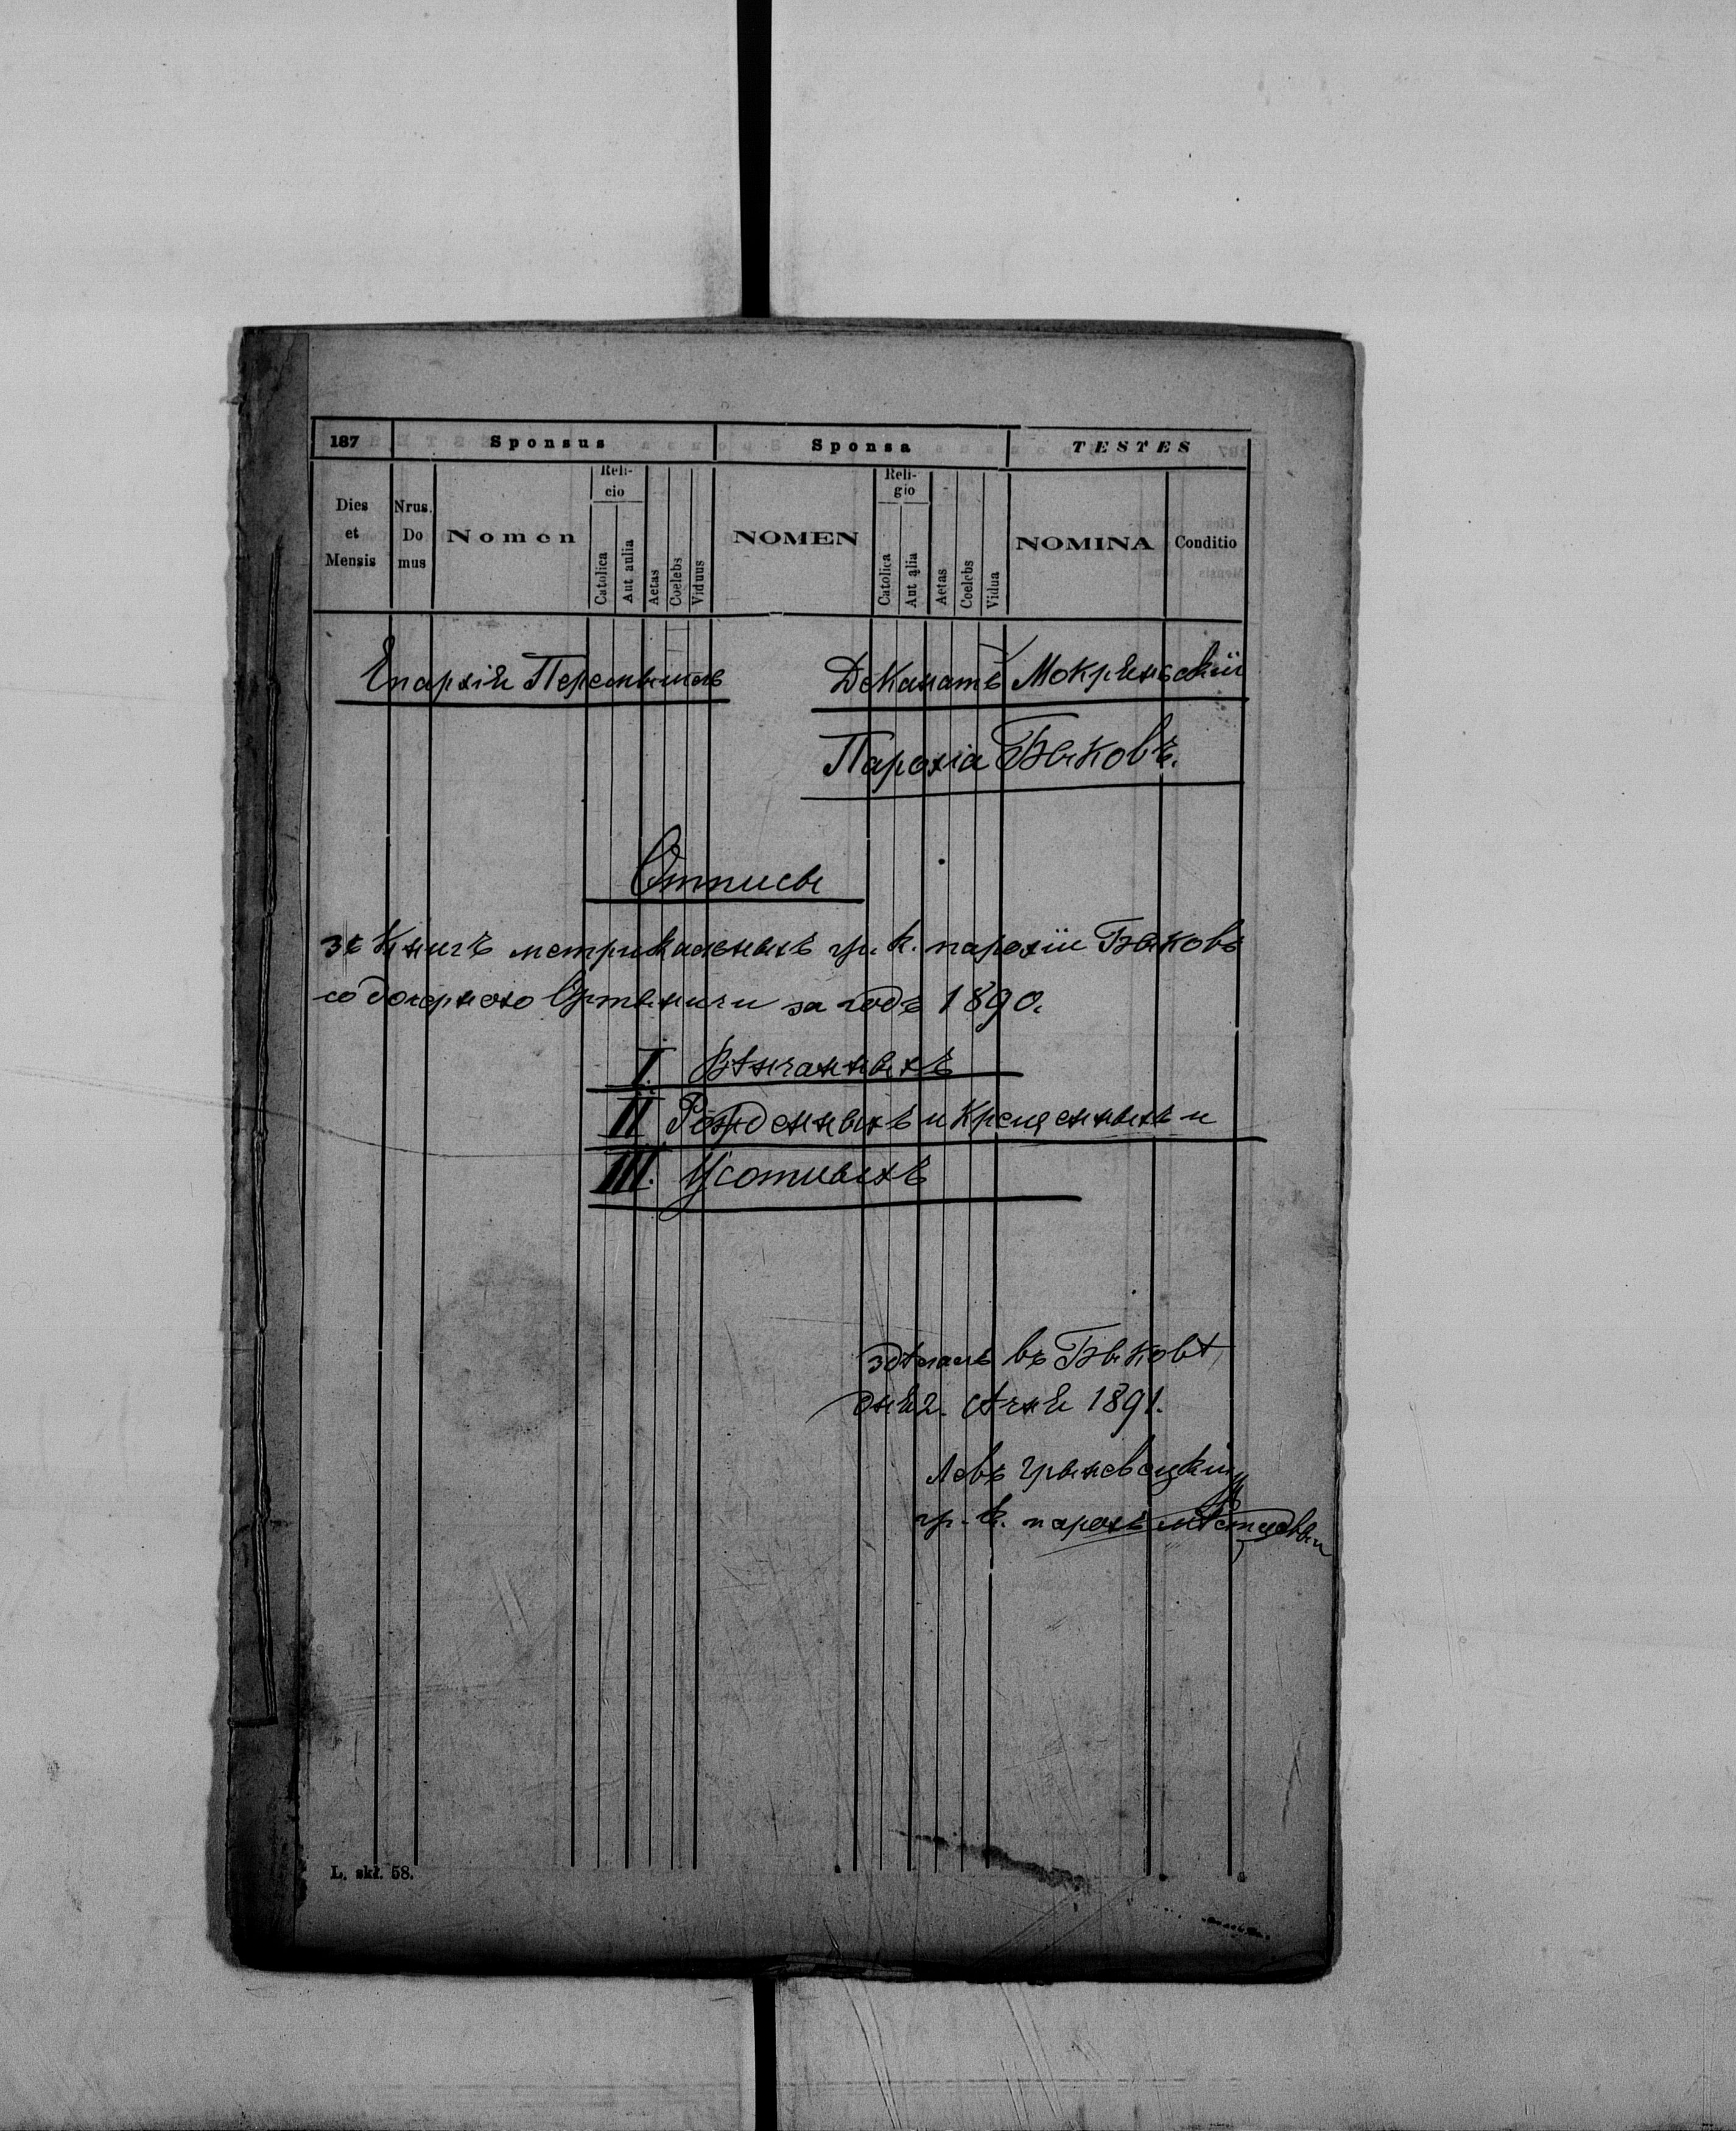 187 Sponsus Sponsa TESTES
Dies et Mensis Nrus. Do mus Nomen Reli- cio Catolica Aut aulia Aetas Coelebs Viduus NOMEN Reli- gio Catolica Aut alia Aetas Coelebs Vidua NOMINA Conditio
Епархія Перемышль Деканатъ Мокрянскій
Парохія Быковъ.
Отпись
зъ Книгъ метрикальныхъ гр. к. парохіи Быковъ
со дочерною Ортыничи за годъ 1890.
I. Вѣнчанныхъ
II Рожденныхъ и Крещенныхъ и
III. Усопшихъ
въ Быковѣ
дня 2. Січня 1891.
Левъ
гр. к. парохъ
L. skł. 58.